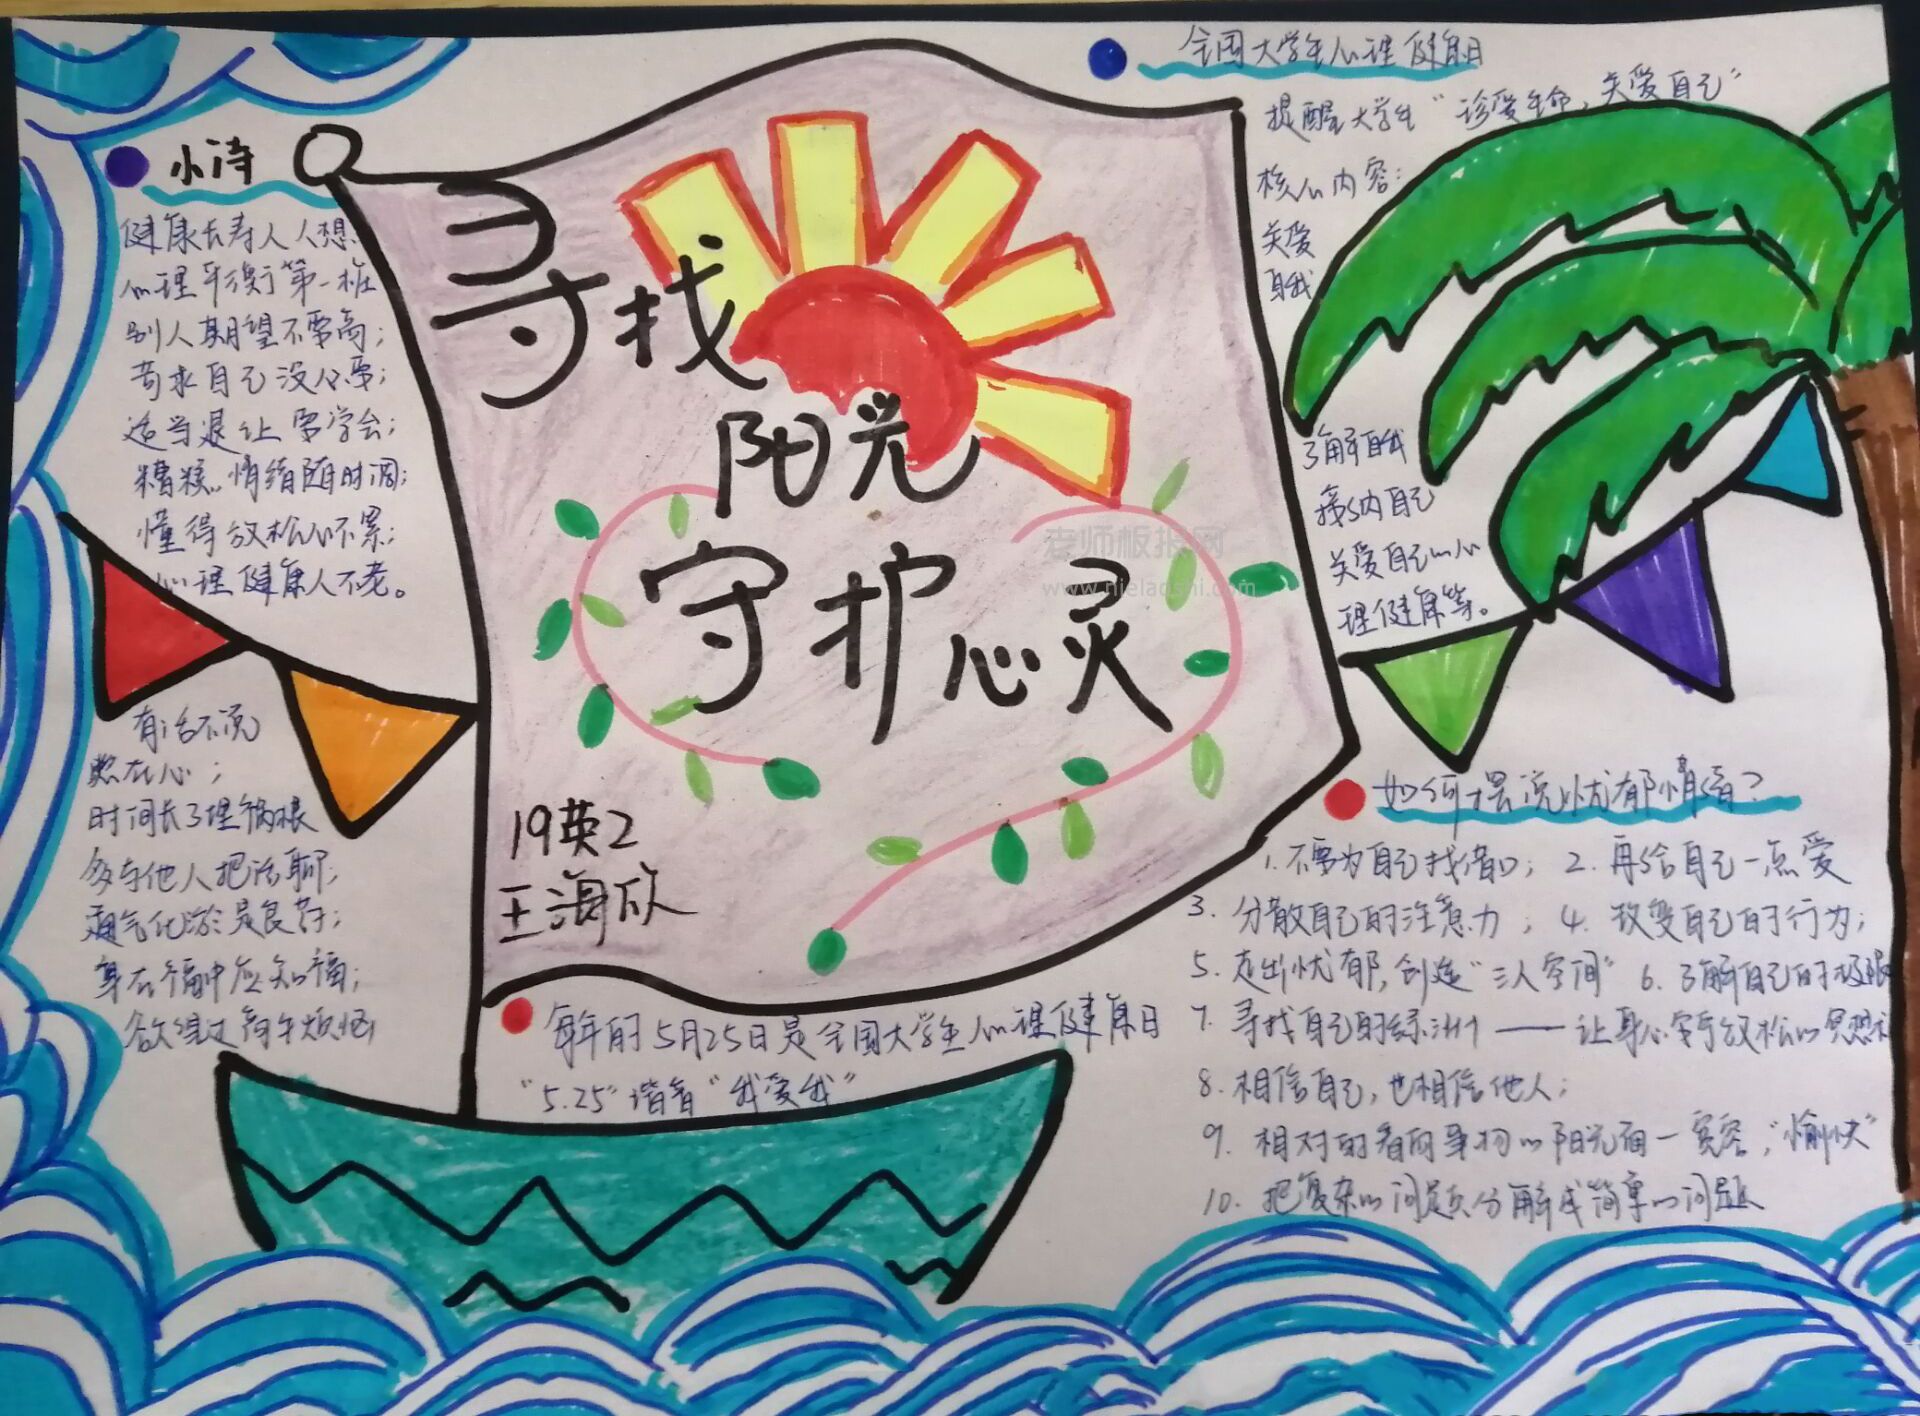 小诗
健康长寿人人想
心理平衡第一桩
别人期望不要高；
苛求自己没必要；
适当退让要学会；
糟糕情绪随时调；
懂得放松心不累；
心理健康人不老。
有话不说
憋在心；
时间长了埋祸根
多与他人把话聊，
通气化淤是良药；
身在福中应知福；
寻找
阳光
守护心灵
19英2
王海欣
老师板报网
每年的5月25日是全国大学生心理健康日
“5.25”谐音“我爱我”
全国大学生心理健康日
提醒大学生“珍爱生命，关爱自己”
核心内容：
关爱
自我
了解自我
接纳自己
关爱自己心心
理健康等。
如何摆脱忧郁情绪？
1. 不要为自己找借口； 2. 再给自己一点爱
3. 分散自己的注意力； 4. 改变自己的行为；
5. 走出忧郁，创造“三人空间” 6. 了解自己的极限
7. 寻找自己的绿洲——让身心宁放松的冥想
8. 相信自己，也相信他人；
9. 相对的看的事物的阳光面—宽容，“愉快”
10. 把复杂的问题分解成简单的问题